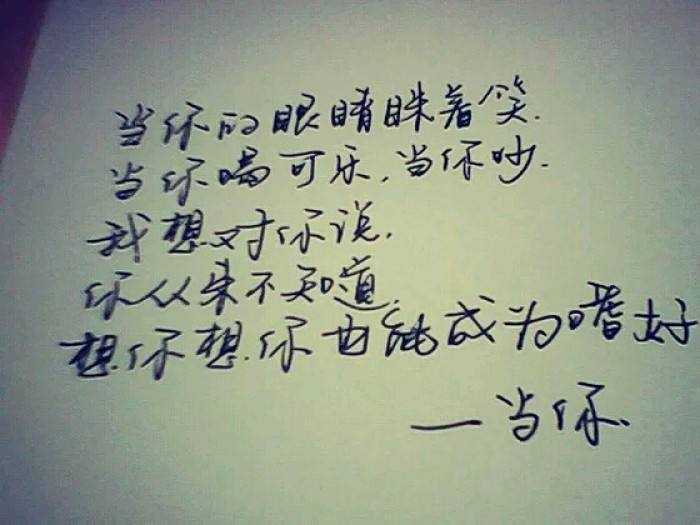 当你的眼睛眯着笑.
当你喝可乐,当你吵.
我想对你说.
你从来不知道.
想你想你也能成为嗜好
—当你.